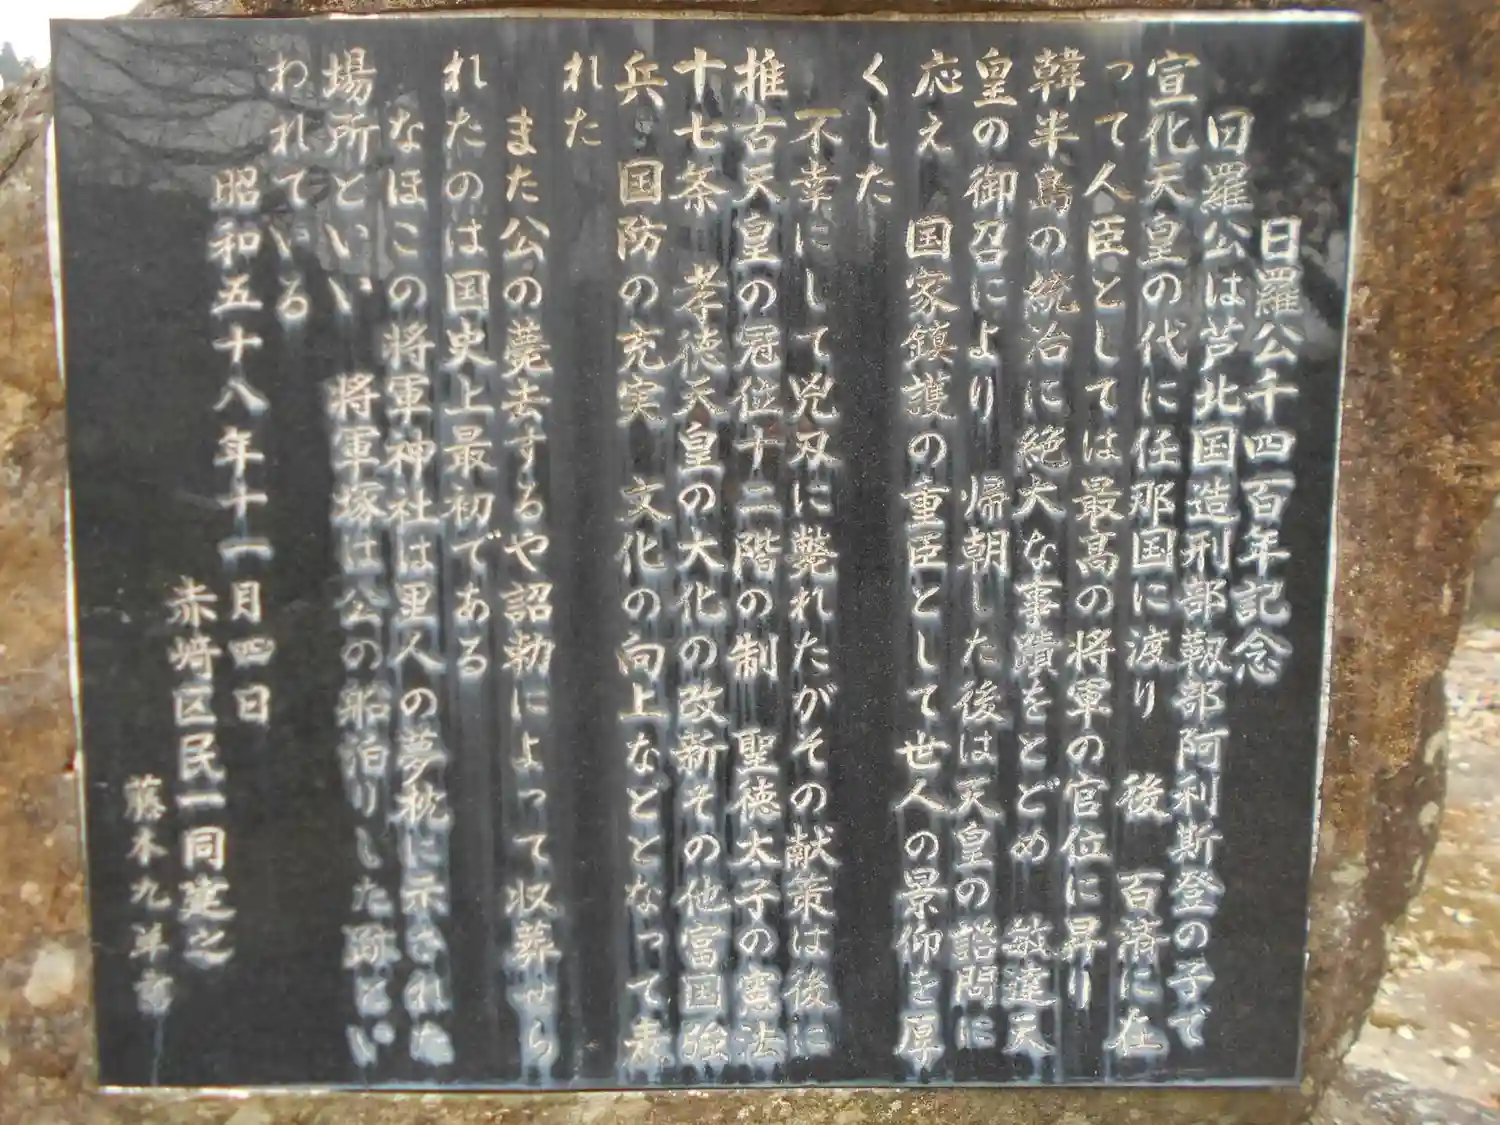 日羅公千四百年記念
日羅公は芦北国造刑部靱部阿利斯登の子で
宣化天皇の代に任那国に渡り 後 百済に在
って人臣としては最高の将軍の官位に昇り
韓半島の統治に絶大な事蹟をとどめ 敏達天
皇の御召により 帰朝した後は天皇の諮問に
応え 国家鎮護の重臣として世人の景仰を厚
くした
不幸にして兇刃に斃れたがその献策は後に
推古天皇の冠位十二階の制 聖徳太子の憲法
十七条 孝徳天皇の大化の改新その他富国強
兵 国防の充実 文化の向上などとなって表
れた
また公の薨去するや詔勅によって収葬せら
れたのは国史上最初である
なほこの将軍神社は里人の夢枕に示された
場所といい 将軍塚は公の船泊りした跡とい
われている
昭和五十八年十一月四日
赤崎区民一同建之
藤本九洋書